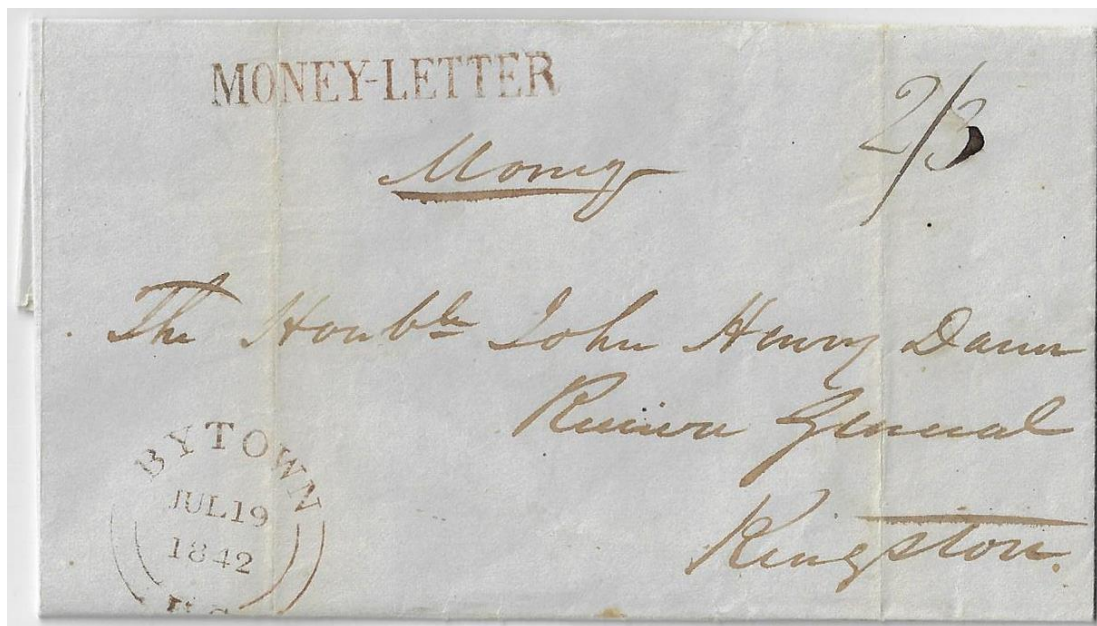 MONEY-LETTER
2/3
Money
The Honble John Henry Dunn
Receiver General
Kingston.
BYTOWN
JUL 19
1842